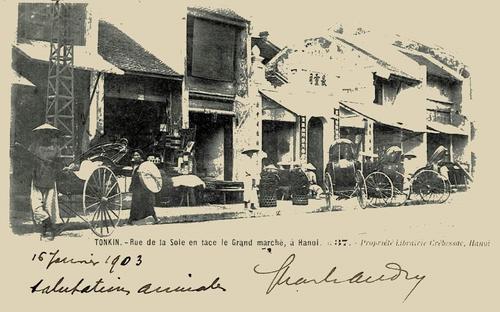 TONKIN. - Rue de la Soie en face le Grand marché, à Hanoi. 37. - Propriété Librairie Crébessac, Hanoi
15 Janvier 1903
salutations amicales